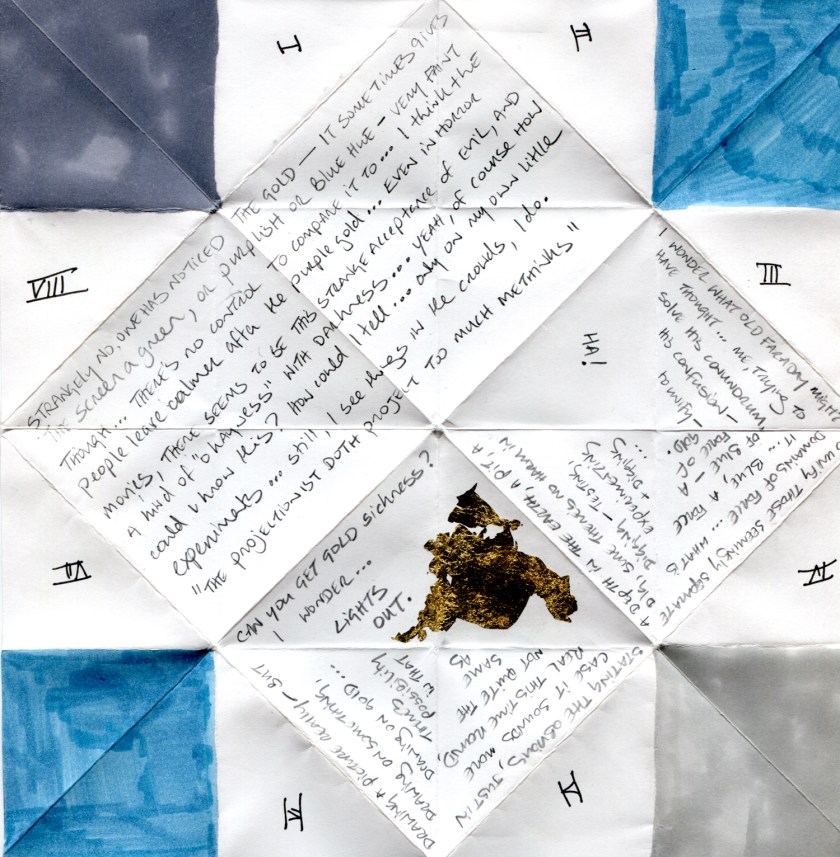 I
II
STRANGELY NO, ONE HAS NOTICED THE GOLD — IT SOMETIMES GIVES
THE SCREEN A GREEN, OR PURPLISH OR BLUE HUE – VERY FAINT
THOUGH... THERE'S NO CONTROL TO COMPARE IT TO... I THINK THE
PEOPLE LEAVE CALMER AFTER THE PURPLE GOLD... EVEN IN HORROR
MOVIES, THERE SEEMS TO BE THIS STRANGE ACCEPTANCE OF EVIL, AND
A KIND OF "OKAYNESS" WITH DARKNESS... YEAH, OF COURSE HOW
COULD I KNOW THIS? HOW COULD I TELL... ONLY ON MY OWN LITTLE
EXPERIMENTS... STILL, I SEE THINGS IN THE CROWDS, I DO.
"THE PROJECTIONIST DOTH PROJECT TOO MUCH METHINKS"
HA!
III
I WONDER WHAT OLD FARADAY MIGHT
HAVE THOUGHT... ME, TRYING TO
SOLVE HIS CONUNDRUM,
HIS CONFUSION –
TO UNIFY –
TO UNIFY THOSE SEEMINGLY SEPARATE
DOMAINS OF FORCE... WHAT'S
IT... BLUE, A FORCE
OF BLUE – A
FORCE OF
GOLD.
IV
A DEPTH IN THE EARTH, A PIT, A
DIG, SURE THERE'S NO HARM IN
DIGGING – TESTING,
EXPERIMENTING
+ DIGGING
...
STATING THE OBVIOUS, JUST IN
CASE IT SOUNDS MORE
REAL THIS TIME ROUND,
NOT QUITE THE
SAME AS
V
DRAWING A PICTURE REALLY – BUT
DRAWING ON SOMETHING,
DRAWING ON GOLD...
THERE'S
POSSIBILITY
IN THAT
VI
CAN YOU GET GOLD SICKNESS?
I WONDER...
LIGHTS
OUT.
VII
VIII